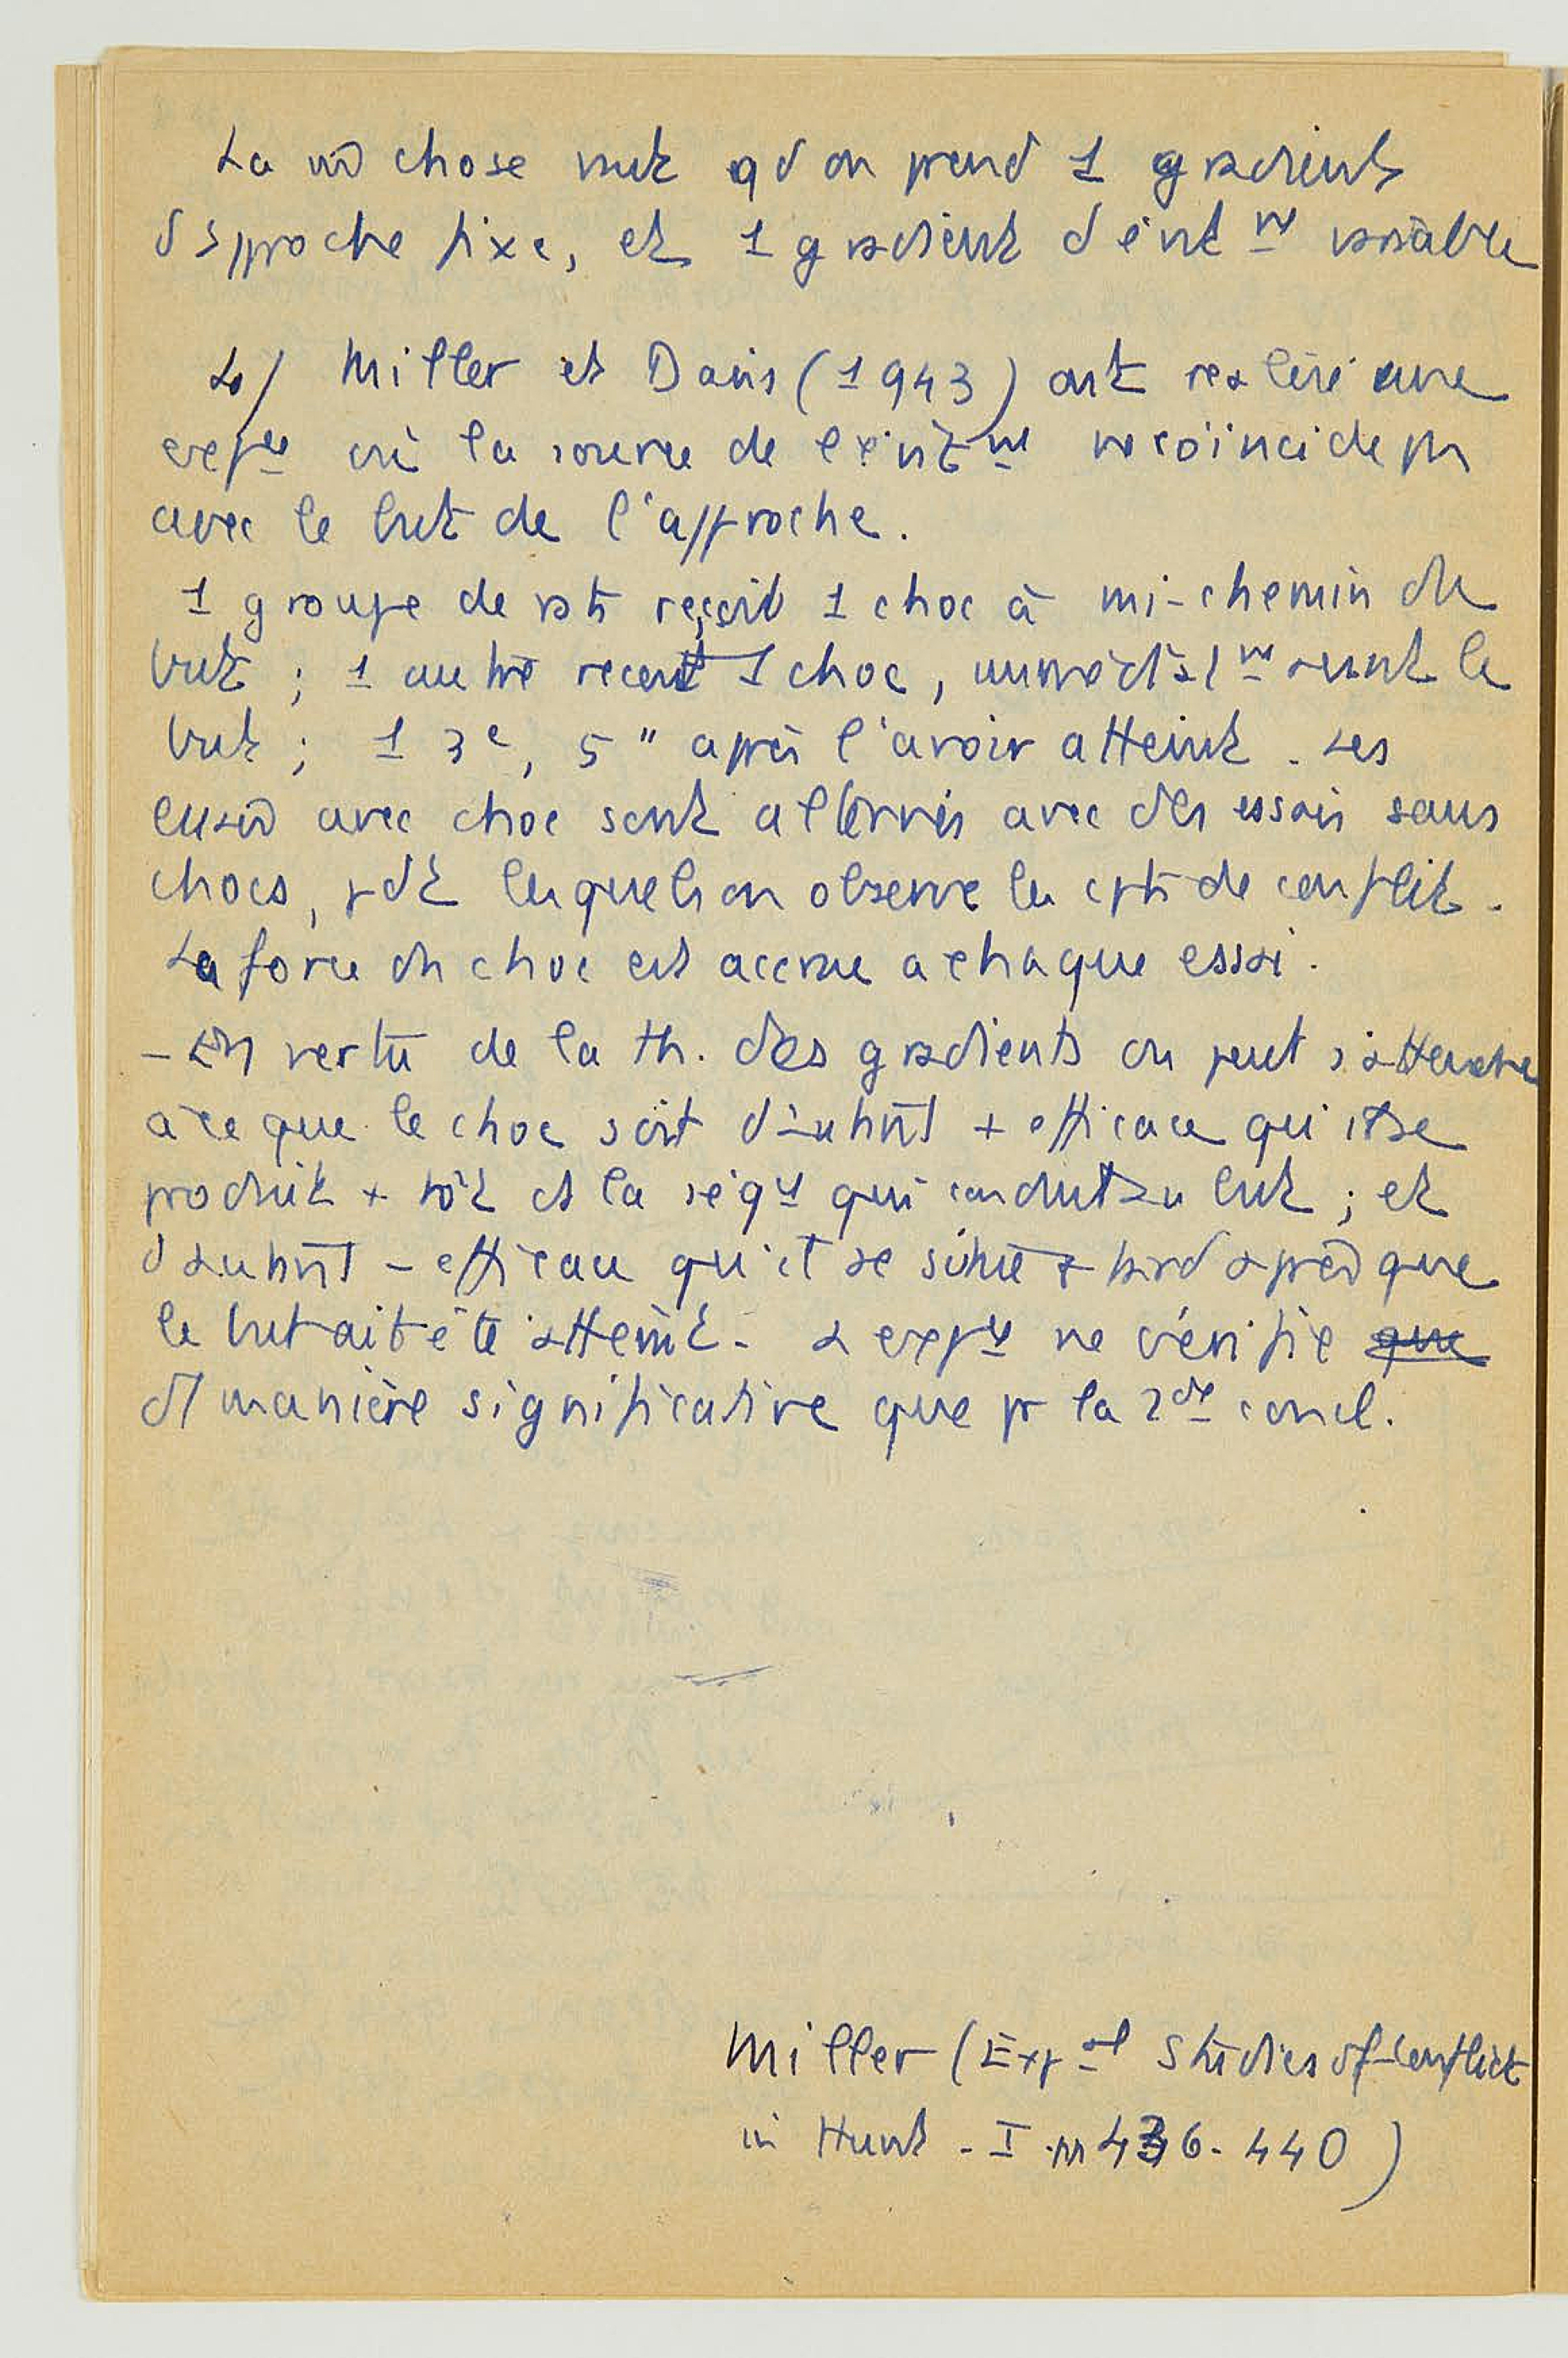 La m̂ chose vaut qd on prend 1 gradient
d'approche fixe, et 1 gradient d'évit^nt variable
Miller et Davis (1943) ont réalisé une
exp^ce où la source de l'évit^nt ne coïncide pas
avec le but de l'approche.
1 groupe de rats reçoit 1 choc à mi-chemin du
but ; 1 autre reçoit 1 choc, immédiat^nt avant le
but ; 1 3e, 5" après l'avoir atteint. Les
essais avec choc sont alternés avec des essais sans
chocs, pdt lesquels on observe les cpts de conflit.
La force du choc est accrue a chaque essai.
- En vertu de la th. des gradients on peut s'attendre
à ce que le choc soit d'autant + efficace qu'il se
produit + tôt ds la séq^ce qui conduit au but ; et
d'autant - efficace qu'il se situe + tard après que
le but ait été atteint. L'exp^ce ne vérifie que
d1 manière significative que pr la 2de concl.
Miller (Exp^al Studies of Conflict
in Hunt - I pp 436-440)